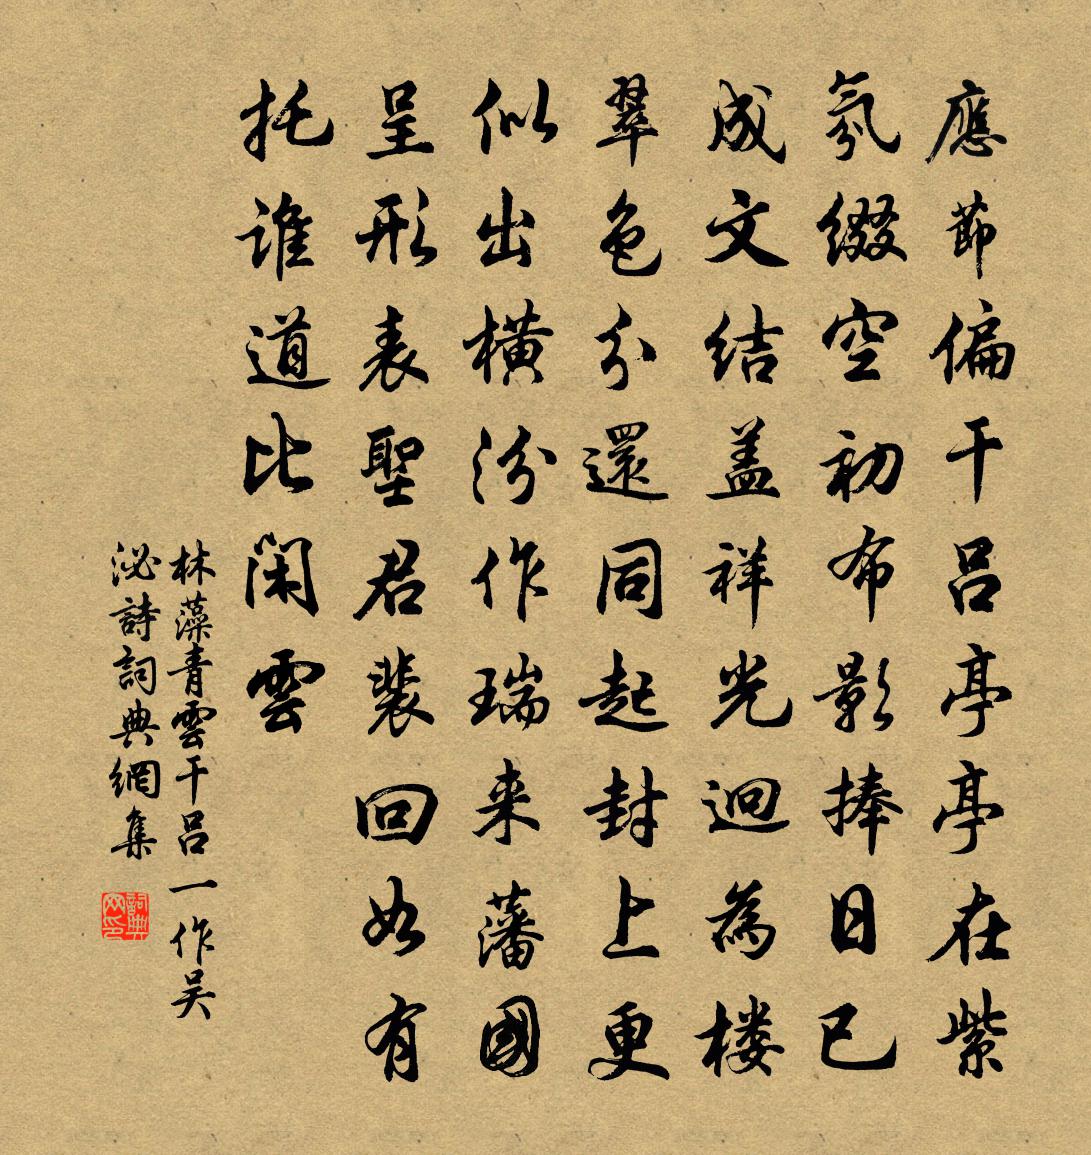 應節偏干呂亭亭在紫
氛綴空初布影捧日已
成文結盖祥光迴為楼
翠色分還同起封上更
似出横汾作瑞来藩國
呈形表聖君裴回如有
托誰道比閑雲
林藻青雲干呂一作吴
泌詩詞典網集
詞典
网印